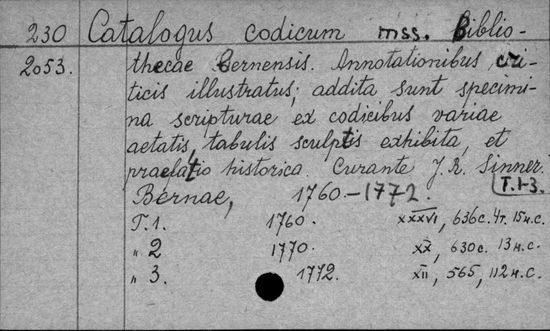 230 Catalogus codicum mss. Biblio-
2053. thecae Bernensis. Annotationibus cri-
ticis illustratus; addita sunt specimi-
na scripturae ex codicibus variae
aetatis, tabulis sculptis exhibita, et
praefatio historica. Curante J. R. Sinner.
Bernae, 1760-1772. T.1-3.
T.1. 1760. XXXVI, 636с. 4т. 15н.с.
" 2 1770. XX, 630с. 13н.с.
" 3. 1772. XII, 565, 112н.с.